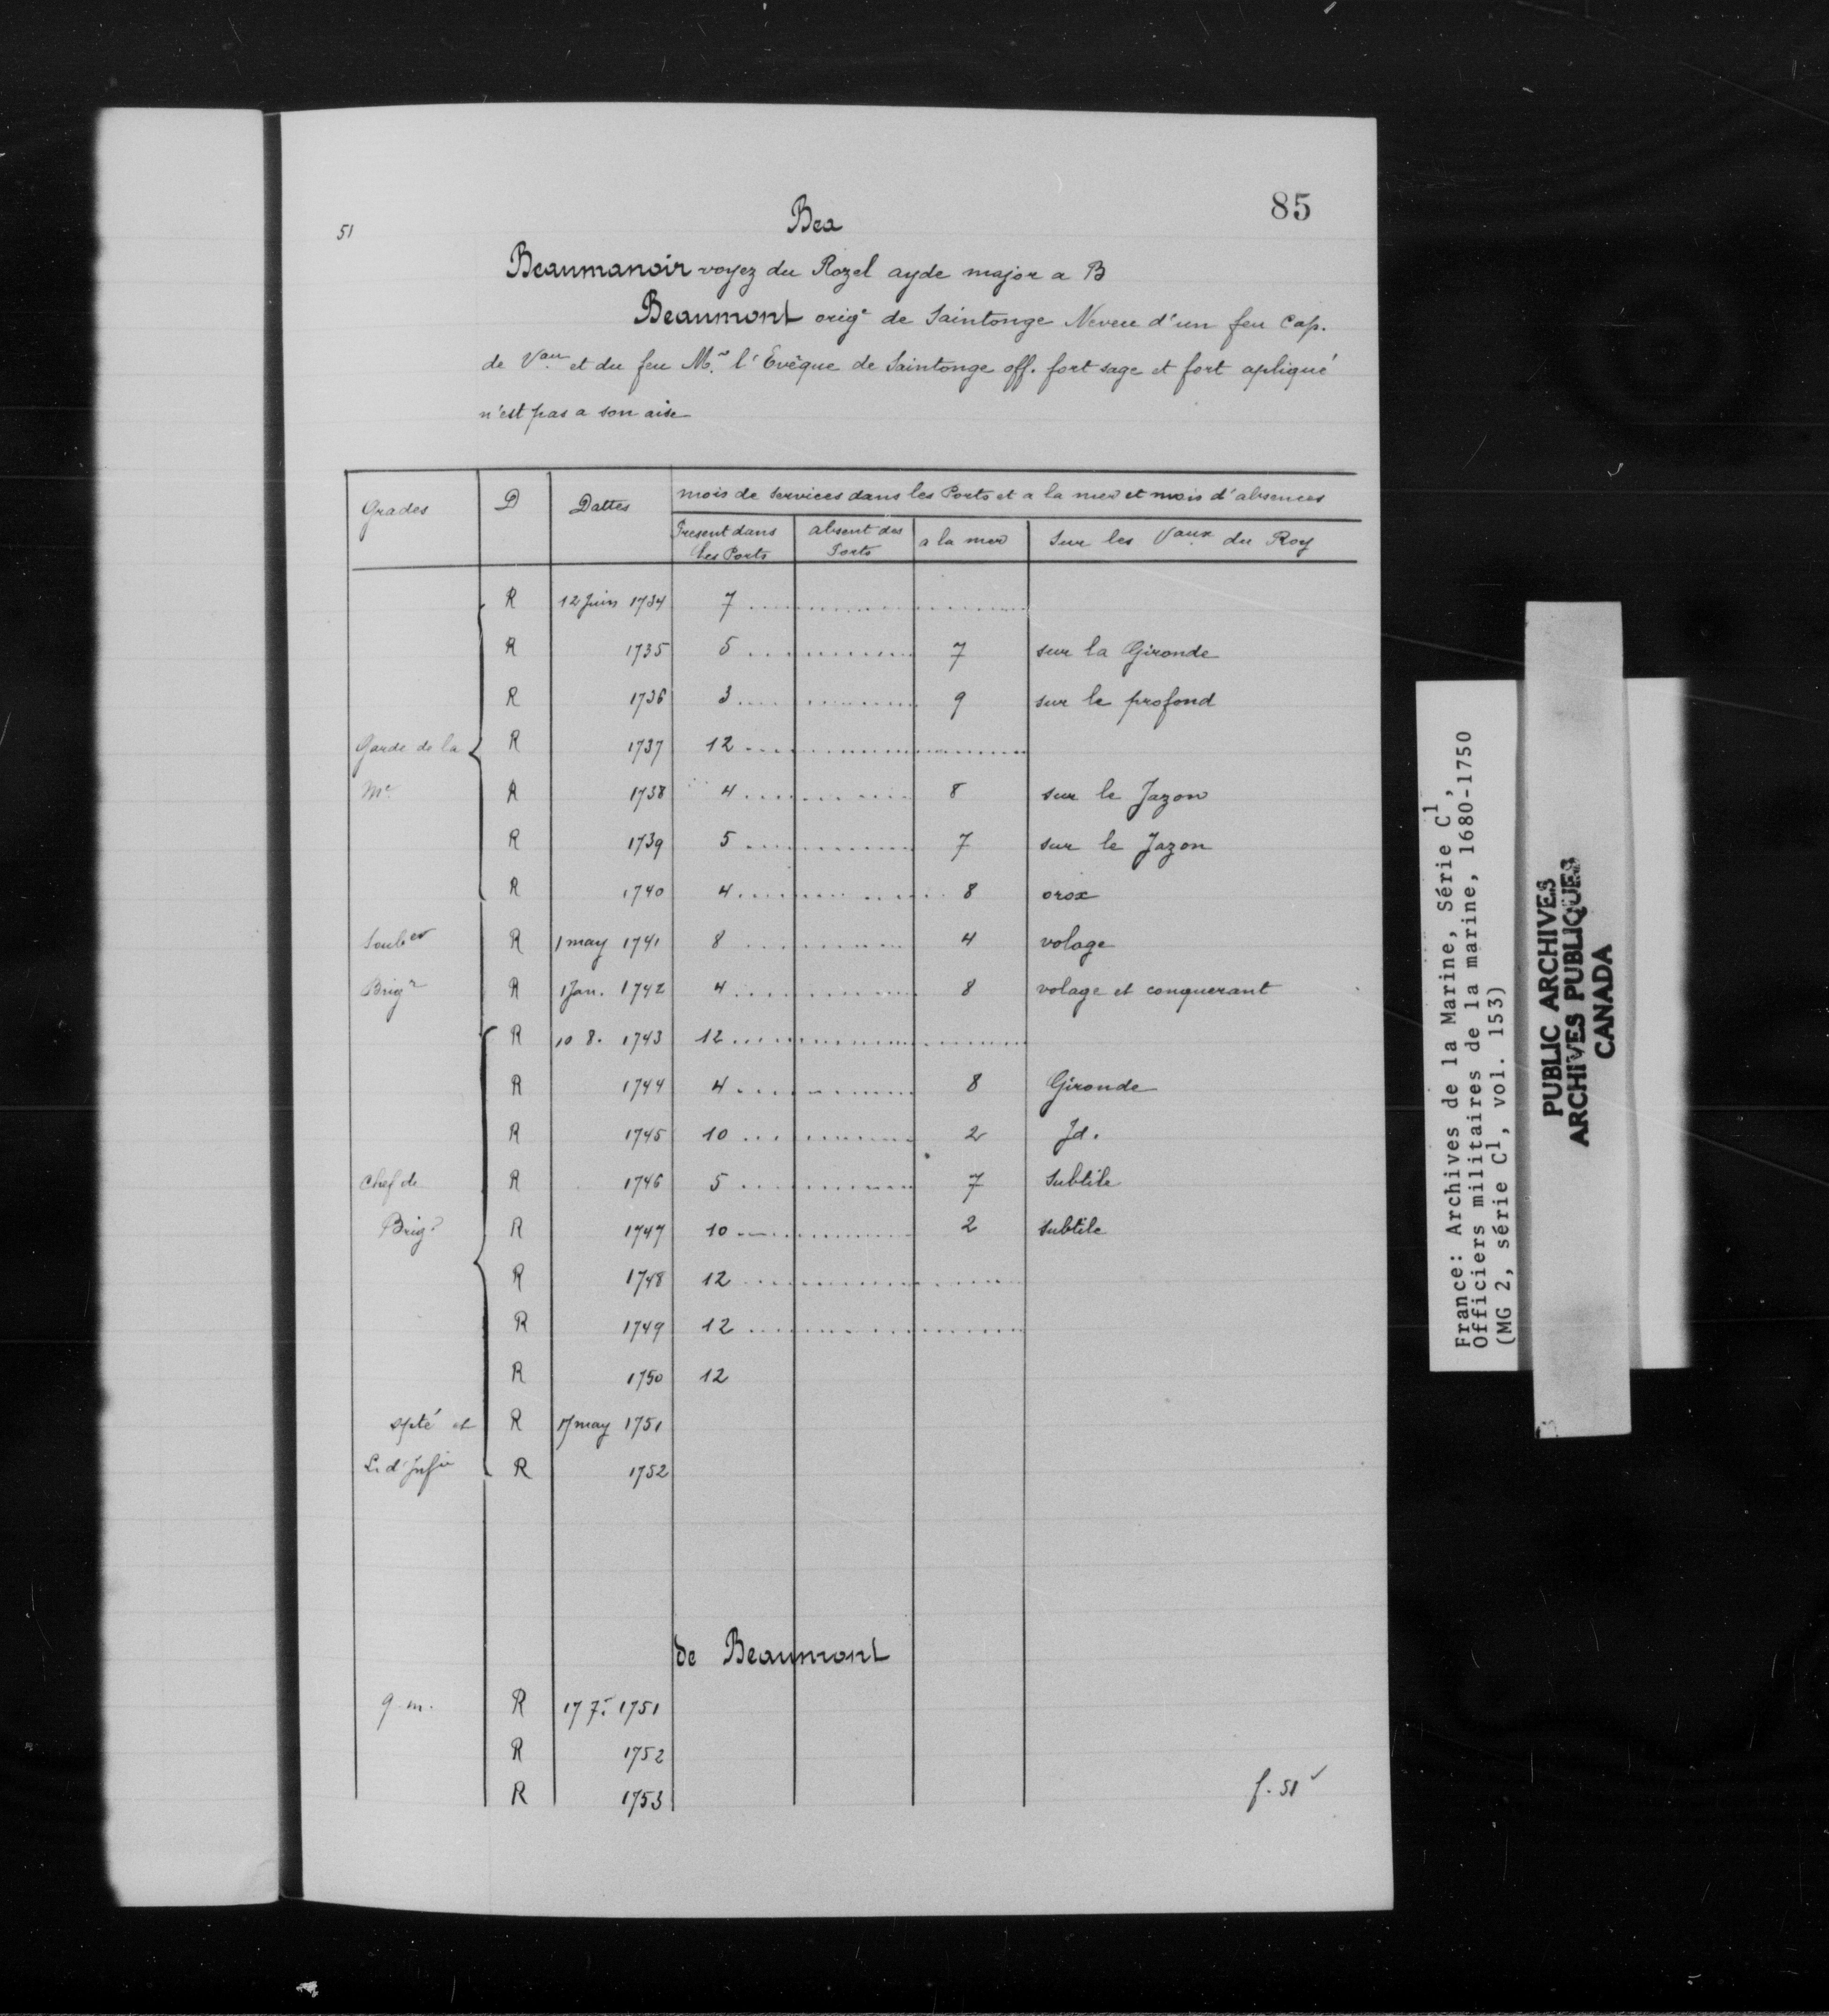 85
51
Bea
Beaumanoir voyez du Rozel ayde major a B
Beaumont orig^e de Saintonge Neveu d'un feu Cap.
de V^au et du feu M^r. l'Evêque de Saintonge off. fort sage et fort apliqué
n'est pas a son aise
Grades D Dattes mois de services dans les Ports et a la mer et mois d'absences
Present dans les Ports absent des Ports a la mer Sur les Vaux du Roy
R 12 Juin 1734 7
R 1735 5 7 sur la Gironde
R 1736 3 9 sur le profond
Garde de la R 1737 12
M^e R 1738 4 8 sur le Jazon
R 1739 5 7 sur le Jazon
R 1740 4 8 orox
R 1 may 1741 8 4 volage
Brig^r R 1 Jan. 1742 4 8 volage et conquerant
R 10 8. 1743 12
R 1744 4 8 Gironde
R 1745 10 2 Jd.
Chef de R 1746 5 7 Subtile
Brig^e R 1747 10 2 subtile
R 1748 12
R 1749 12
R 1750 12
R 17 may 1751
R 1752
de Beaumont
g. m. R 17 7. 1751
R 1752
R 1753
f. 51
France: Archives de la Marine, Série C1,
Officiers militaires de la marine, 1680-1750
(MG 2, série C1, vol. 153)
PUBLIC ARCHIVES
ARCHIVES PUBLIQUES
CANADA